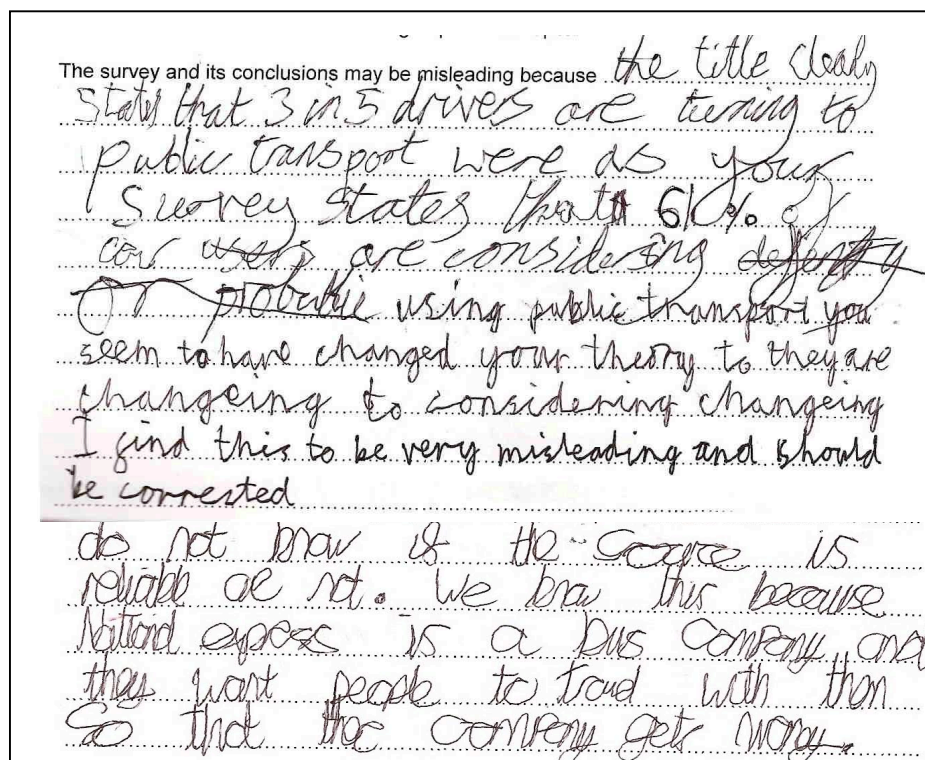 The survey and its conclusions may be misleading because the title clealy
States that 3 in 5 drivers are turning to
public transport were as your
Survey States that 61% of
car users are considering defenitly
or probable using public transport you
seem to have changed your theory to they are
changeing to considering changeing
I find this to be very misleading and should
be corrected
do not know if the source is
reliable or not. We know this because
National express is a bus company and
they want people to travel with them
So that the company gets money.